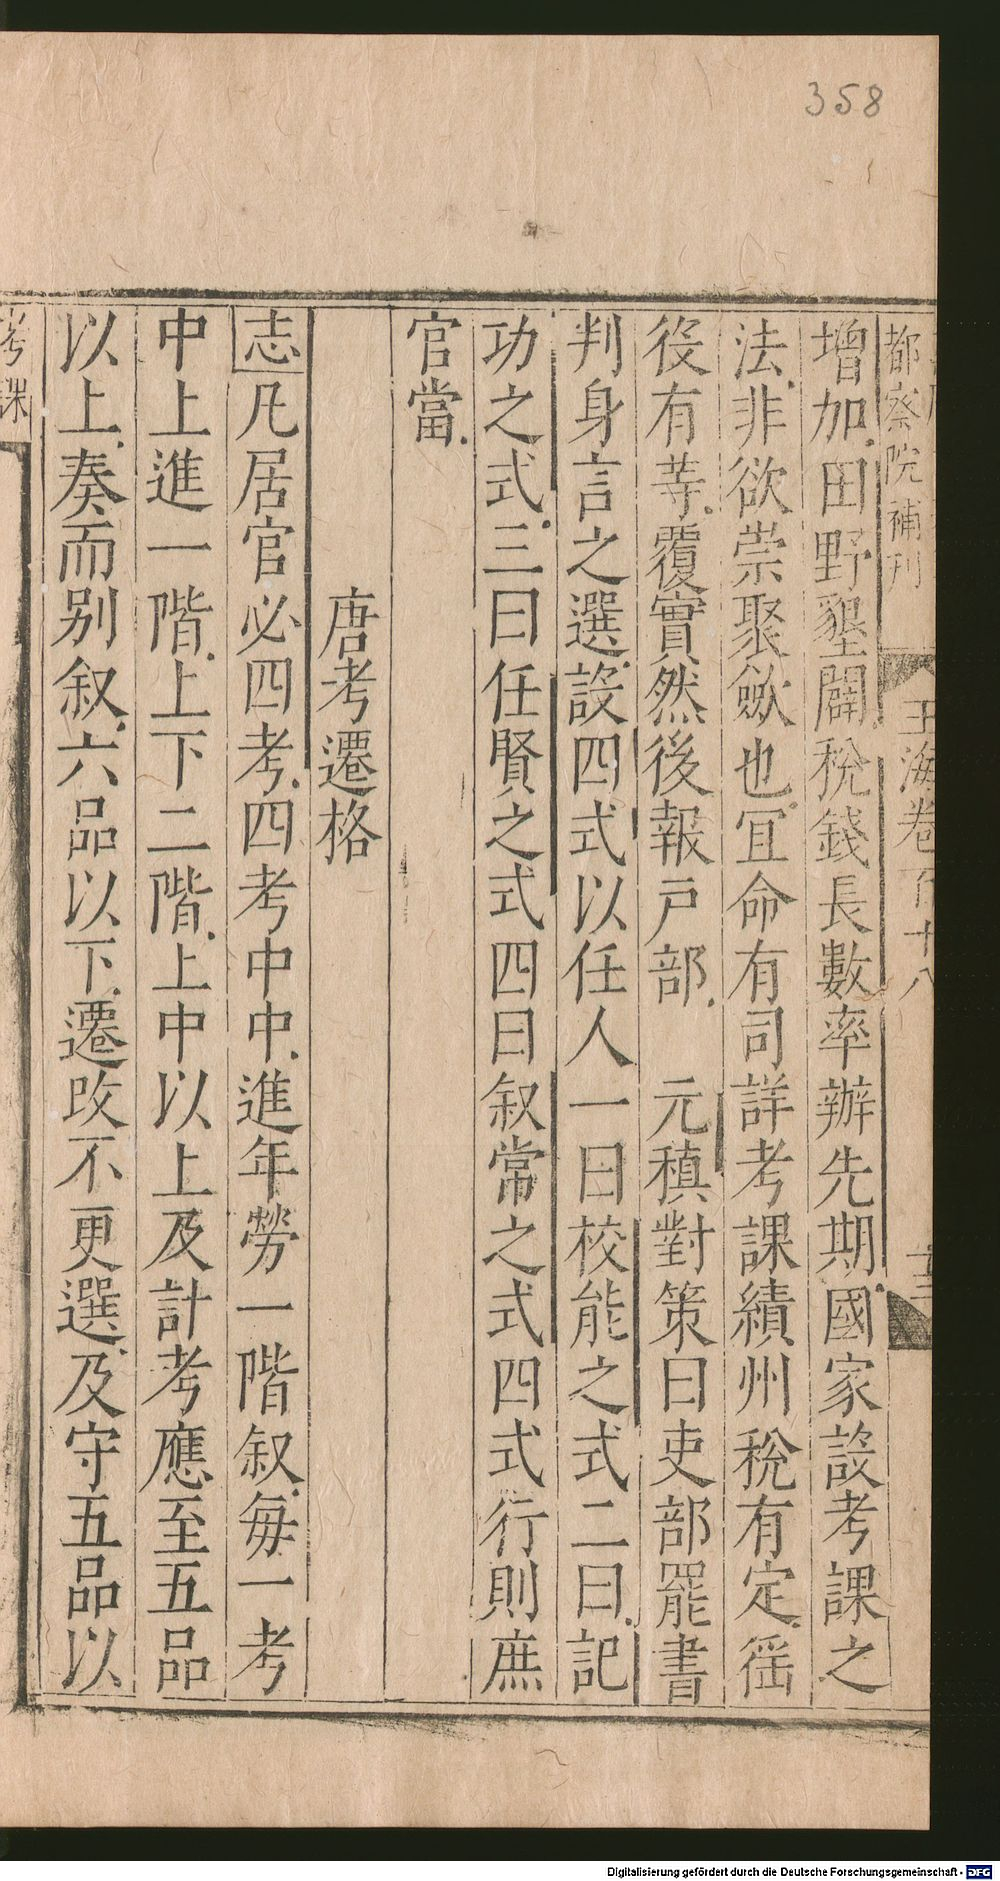 358
都察院補刊 玉海卷百十八 十三
增加田野墾闢稅錢長數率辦先期國家設考課之
法非欲崇聚歛也宜命有司詳考課績州稅有定徭
役有䓁覆實然後報戸部 元稹對策曰吏部罷書
判身言之選設四式以任人一曰校能之式二曰記
功之式三曰任賢之式四曰叙常之式四式行則庶
官當
唐考遷格
志凡居官必四考四考中中進年勞一階叙每一考
中上進一階上下二階上中以上及計考應至五品
以上奏而别叙六品以下遷改不更選及守五品以
考課
Digitalisierung gefördert durch die Deutsche Forschungsgemeinschaft - DFG